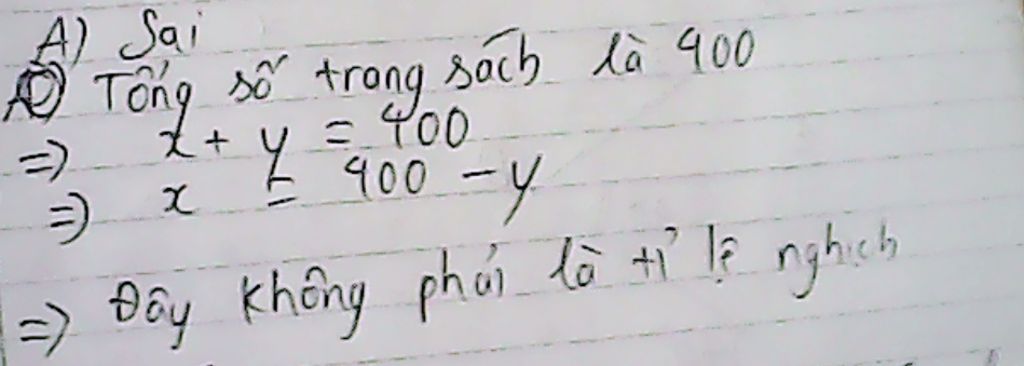 A) Sai
Tổng số trang sách là 400
=> x + y = 400
=> x = 400 - y
=> Đây không phải là tỉ lệ nghịch